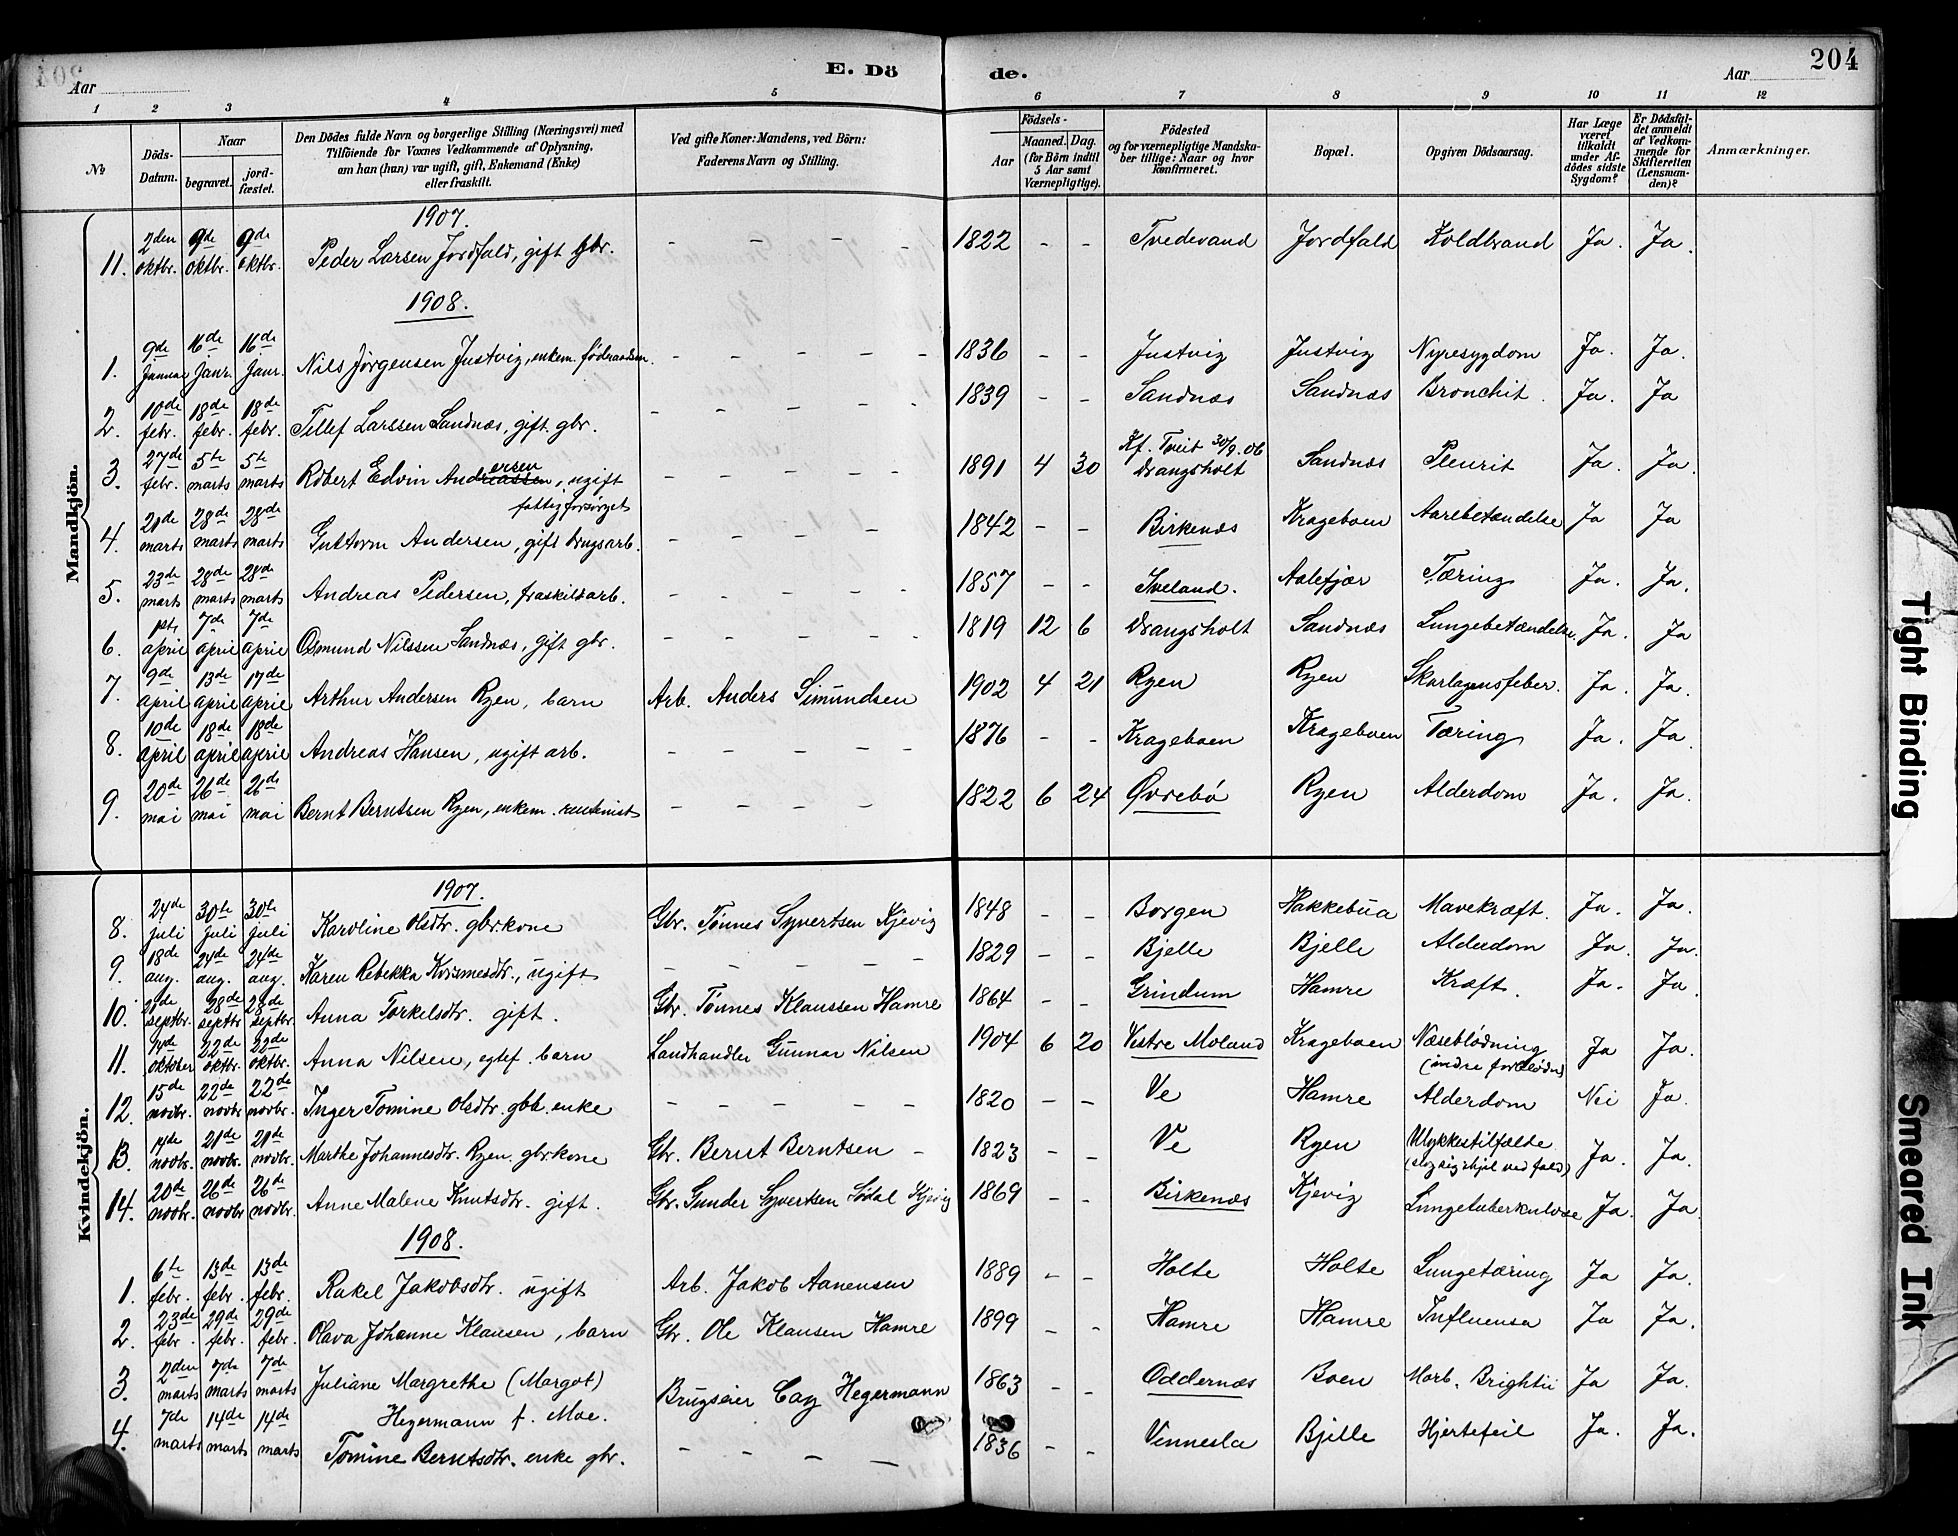 204
E. Dö de.
Aar Aar
1 2 3 4 5 6 7 8 9 10 11 12
No
Döds-Datum.
Naar
begravet.
jord-fæstet.
Den Dödes fulde Navn og borgerlige Stilling (Næringsvei) med
Tilföiende for Voxnes Vedkommende af Oplysning,
om han (hun) var ugift, gift, Enkemand (Enke)
eller fraskilt.
Ved gifte Koner: Mandens, ved Börn:
Faderens Navn og Stilling.
Födsels-
Aar
Maaned. Dag.
(for Börn indtil
5 Aar samt
Værnepligtige).
Födested
og for værnepligtige Mandskaber tillige: Naar og hvor
konfirmeret.
Bopæl.
Opgiven Dödsaarsag.
Har Læge været tilkaldt under Afdödes sidste Sygdom?
Er Dödsfaldet anmeldt af Vedkommende for Skifteretten (Lensmanden)?
Anmærkninger.
Mandkjön.
1907.
11. 2den oktbr. 9de oktbr. 9de oktbr. Peder Larsen Jordfald, gift gbr. - - - - 1822 - - Tvedevand Jordfald Koldbrand Ja. Ja.
1908.
1. 9de Januar 16de Janr. 16de Janr. Nils Jörgensen Justvig, enkem. föderaadsm. - - - - - 1836 - - Justvig Justvig Nyresygdom Ja. Ja.
2. 10de febr. 18de febr. 18de febr. Tellef Larssen Sandnæs, gift gbr. - - - - - 1839 - - Sandnæs Sandnæs Bronchit. Ja. Ja
3. 27de febr. 5te marts 5te marts Robert Edvin Andreassen ersen, ugift fattigforsørget - - - - 1891 4 30 Kf. Tveit 30/9.06 Drangsholt Sandnæs Pleurit Ja. Ja.
4. 21de marts 28de marts 28de marts Guttorm Andersen, gift brugsarb. - - - - 1842 - - Birkenæs Krageboen Aarebetændelse Ja Ja
5. 23de marts 28de marts 28de marts Andreas Pedersen, fraskilt arb. - - - - - 1857 - - Iveland. Aalefjær Tæring Ja. Ja.
6. 1ste april 7de april 7de april Osmund Nilssen Sandnæs, gift gbr. - - - - 1819 12 6 Drangsholt Sandnæs Lungebetændelse. Ja. Ja
7. 9de april 13de april 17de april Arthur Andersen Ryen, barn Arb. Anders Simundsen 1902 4 21 Ryen Ryen Skarlagensfeber. Ja. Ja.
8. 10de april 18de april 18de april Andreas Hansen, ugift arb. - - - - - 1876 - - Krageboen Krageboen Tæring Ja. Ja.
9. 20de mai 26de mai 26de mai Bernt Berntsen Ryen, enkem. rentenist - - - - 1822 6 24 Øvrebø Ryen Alderdom Ja. Ja.
Kvindekjön.
1907.
8. 24de juli 30te juli 30te juli Karoline Olsdtr. gbr.kone Gbr. Tønnes Syvertsen Kjevig 1848 - - Borgen Hakkebua Mavekræft. Ja. Ja.
9. 18de aug. 24de aug. 24de aug. Karen Rebekka Kosmesdtr., ugift - - - - - 1829 - - Bjelle Bjelle Alderdom Ja. Ja.
10. 21de septbr. 28de septbr 28de septbr Anna Torkelsdtr. gift. Gbr. Tønnes Klaussen Hamre 1864 - - Grindum Hamre Kræft. Ja. Ja
11. 14de oktober 22de oktbr. 22de oktbr. Anna Nilsen, egtef. barn Landhandler Gunnar Nilsen 1904 6 20 Vestre Moland Krageboen Næseblødning (indre forblødn.) Ja Ja.
12. 15de novbr. 22de novbr 22de novbr. Inger Tomine Olsdtr. gbr. enke - - - - - 1820 - - Ve Hamre Alderdom Nei Ja.
13. 14de novbr. 21de novbr. 21de novbr. Marthe Johannesdtr. Ryen. gbr.kone Gbr. Bernt Berntsen - 1823 - - Ve Ryen Ulykkestilfælde (slog sig ihjel ved fald) Ja. Ja.
14. 20de novbr. 26de novbr 26de novbr. Anne Malene Knutsdtr. gift. Gbr. Gunder Syvertsen Sødal Kjevig 1869 - - Birkenæs Kjevig Lungetuberkulose Ja. Ja.
1908.
1. 6te febr. 13de febr. 13de febr. Rakel Jakobsdtr. ugift Arb. Jakob Aanensen 1889 - - Holte Holte Lungetæring Ja Ja.
2. 23de febr 29de febr. 29de febr. Olava Johanne Klausen, barn Gbr. Ole Klausen Hamre 1899 - - Hamre Hamre Influensa Ja Ja.
3. 2den marts 7de marts 7de marts Juliane Margrethe (Margot) Hegermann f. Moe. Brugseier Cay Hegermann 1863 - - Oddernæs Boen Morb. Brightii Ja Ja.
4. 7de marts 14de marts 14de marts Tomine Berntsdtr. enke gbr. - - - - 1836 - - Vennesla Bjelle Hjertefeil Ja. Ja.
Tight Binding
Smeared Ink